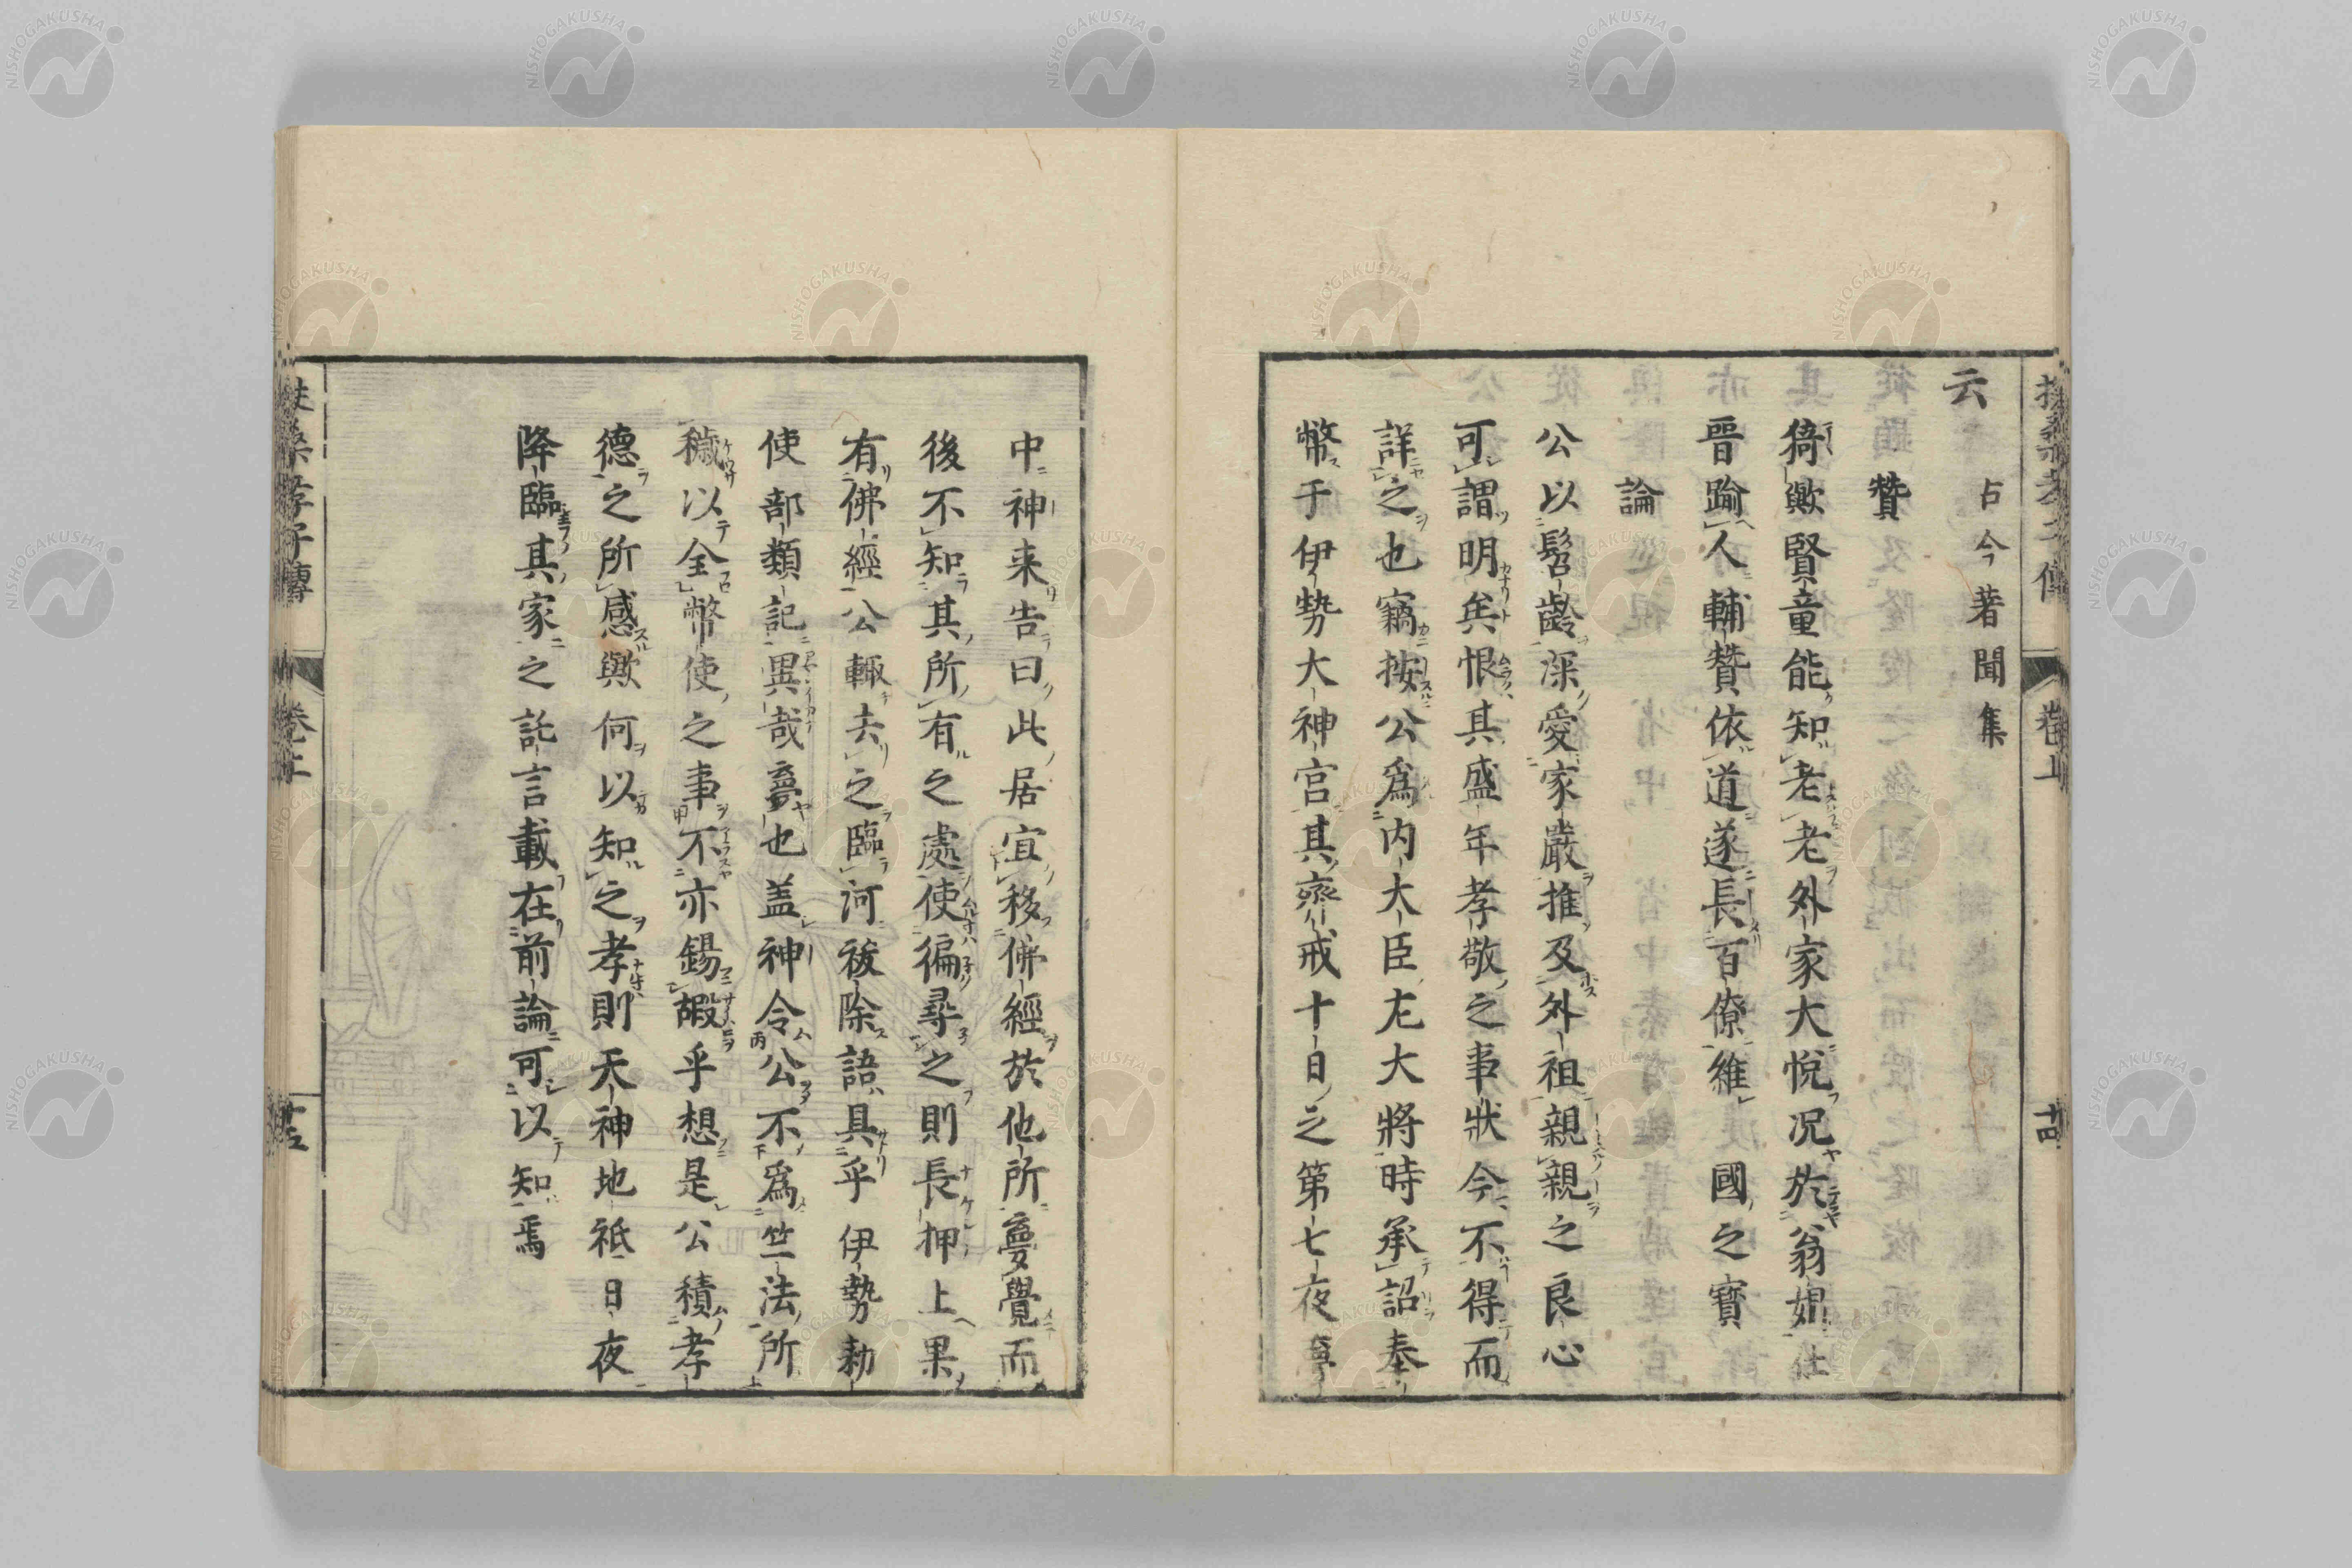 云
古今著聞集
贊
猗歟賢童能知老老外家大悅况於翁媼仕
晋踰人輔贊依道遂長百僚維國之寳
論
公以髫齡深愛家嚴推及外祖親親之良心
可謂明矣恨其盛年孝敬之事狀今不得而
詳之也竊按公爲内大臣左大將時承詔奉
幣于伊勢大神宮其齋戒十日之第七夜夢
中神来告曰此居宜移佛經於他所夢覺而
後不知其所有之處使徧尋之則長押上果
有佛經公輙去之臨河祓除語具乎伊勢勅
使部類記異哉夢也盖神令公不爲竺法所
穢以全幣使之事不亦錫嘏乎想是公積孝
德之所感歟何以知之孝則天神地祇日夜
降臨其家之託言載在前論可以知焉
扶桑孝子傳 卷上 十四
扶桑孝子傳 卷上 十五